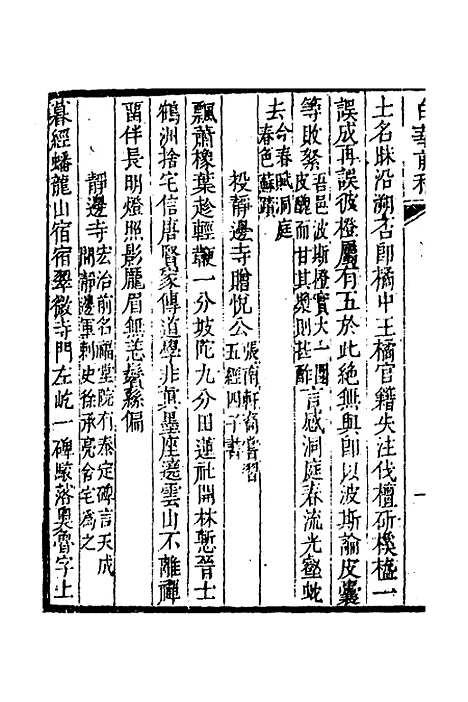 白華前稿
土名昧沿溯古即橘中王橘官籍失注伐檀斫樸樝一
誤成再誤彼橙屬有五於此絶無與即以波斯論皮囊
等敗絮吾邑波斯橙實大一圍皮醜而甘其漿則甚酢言感洞庭春流光壑蛇
去今春賦洞庭春色蘇蹟
投靜邊寺贈悅公張南軒裔嘗習五經四子書
飄蕭橡葉趁輕韉一分坡陀九分田蓮社開林慙晉士
鶴洲捨宅信唐賢家傳道學非真墨座邈雲山不離禪
畱伴長明燈照影龐眉無恙鬢絲偏
靜邊寺宏治前名福堂院有泰定碑言天成間靜邊軍刺史徐承亮舍宅爲之
暮經蟠龍山宿宿翠微寺門左屹一碑駮落奧魯字上